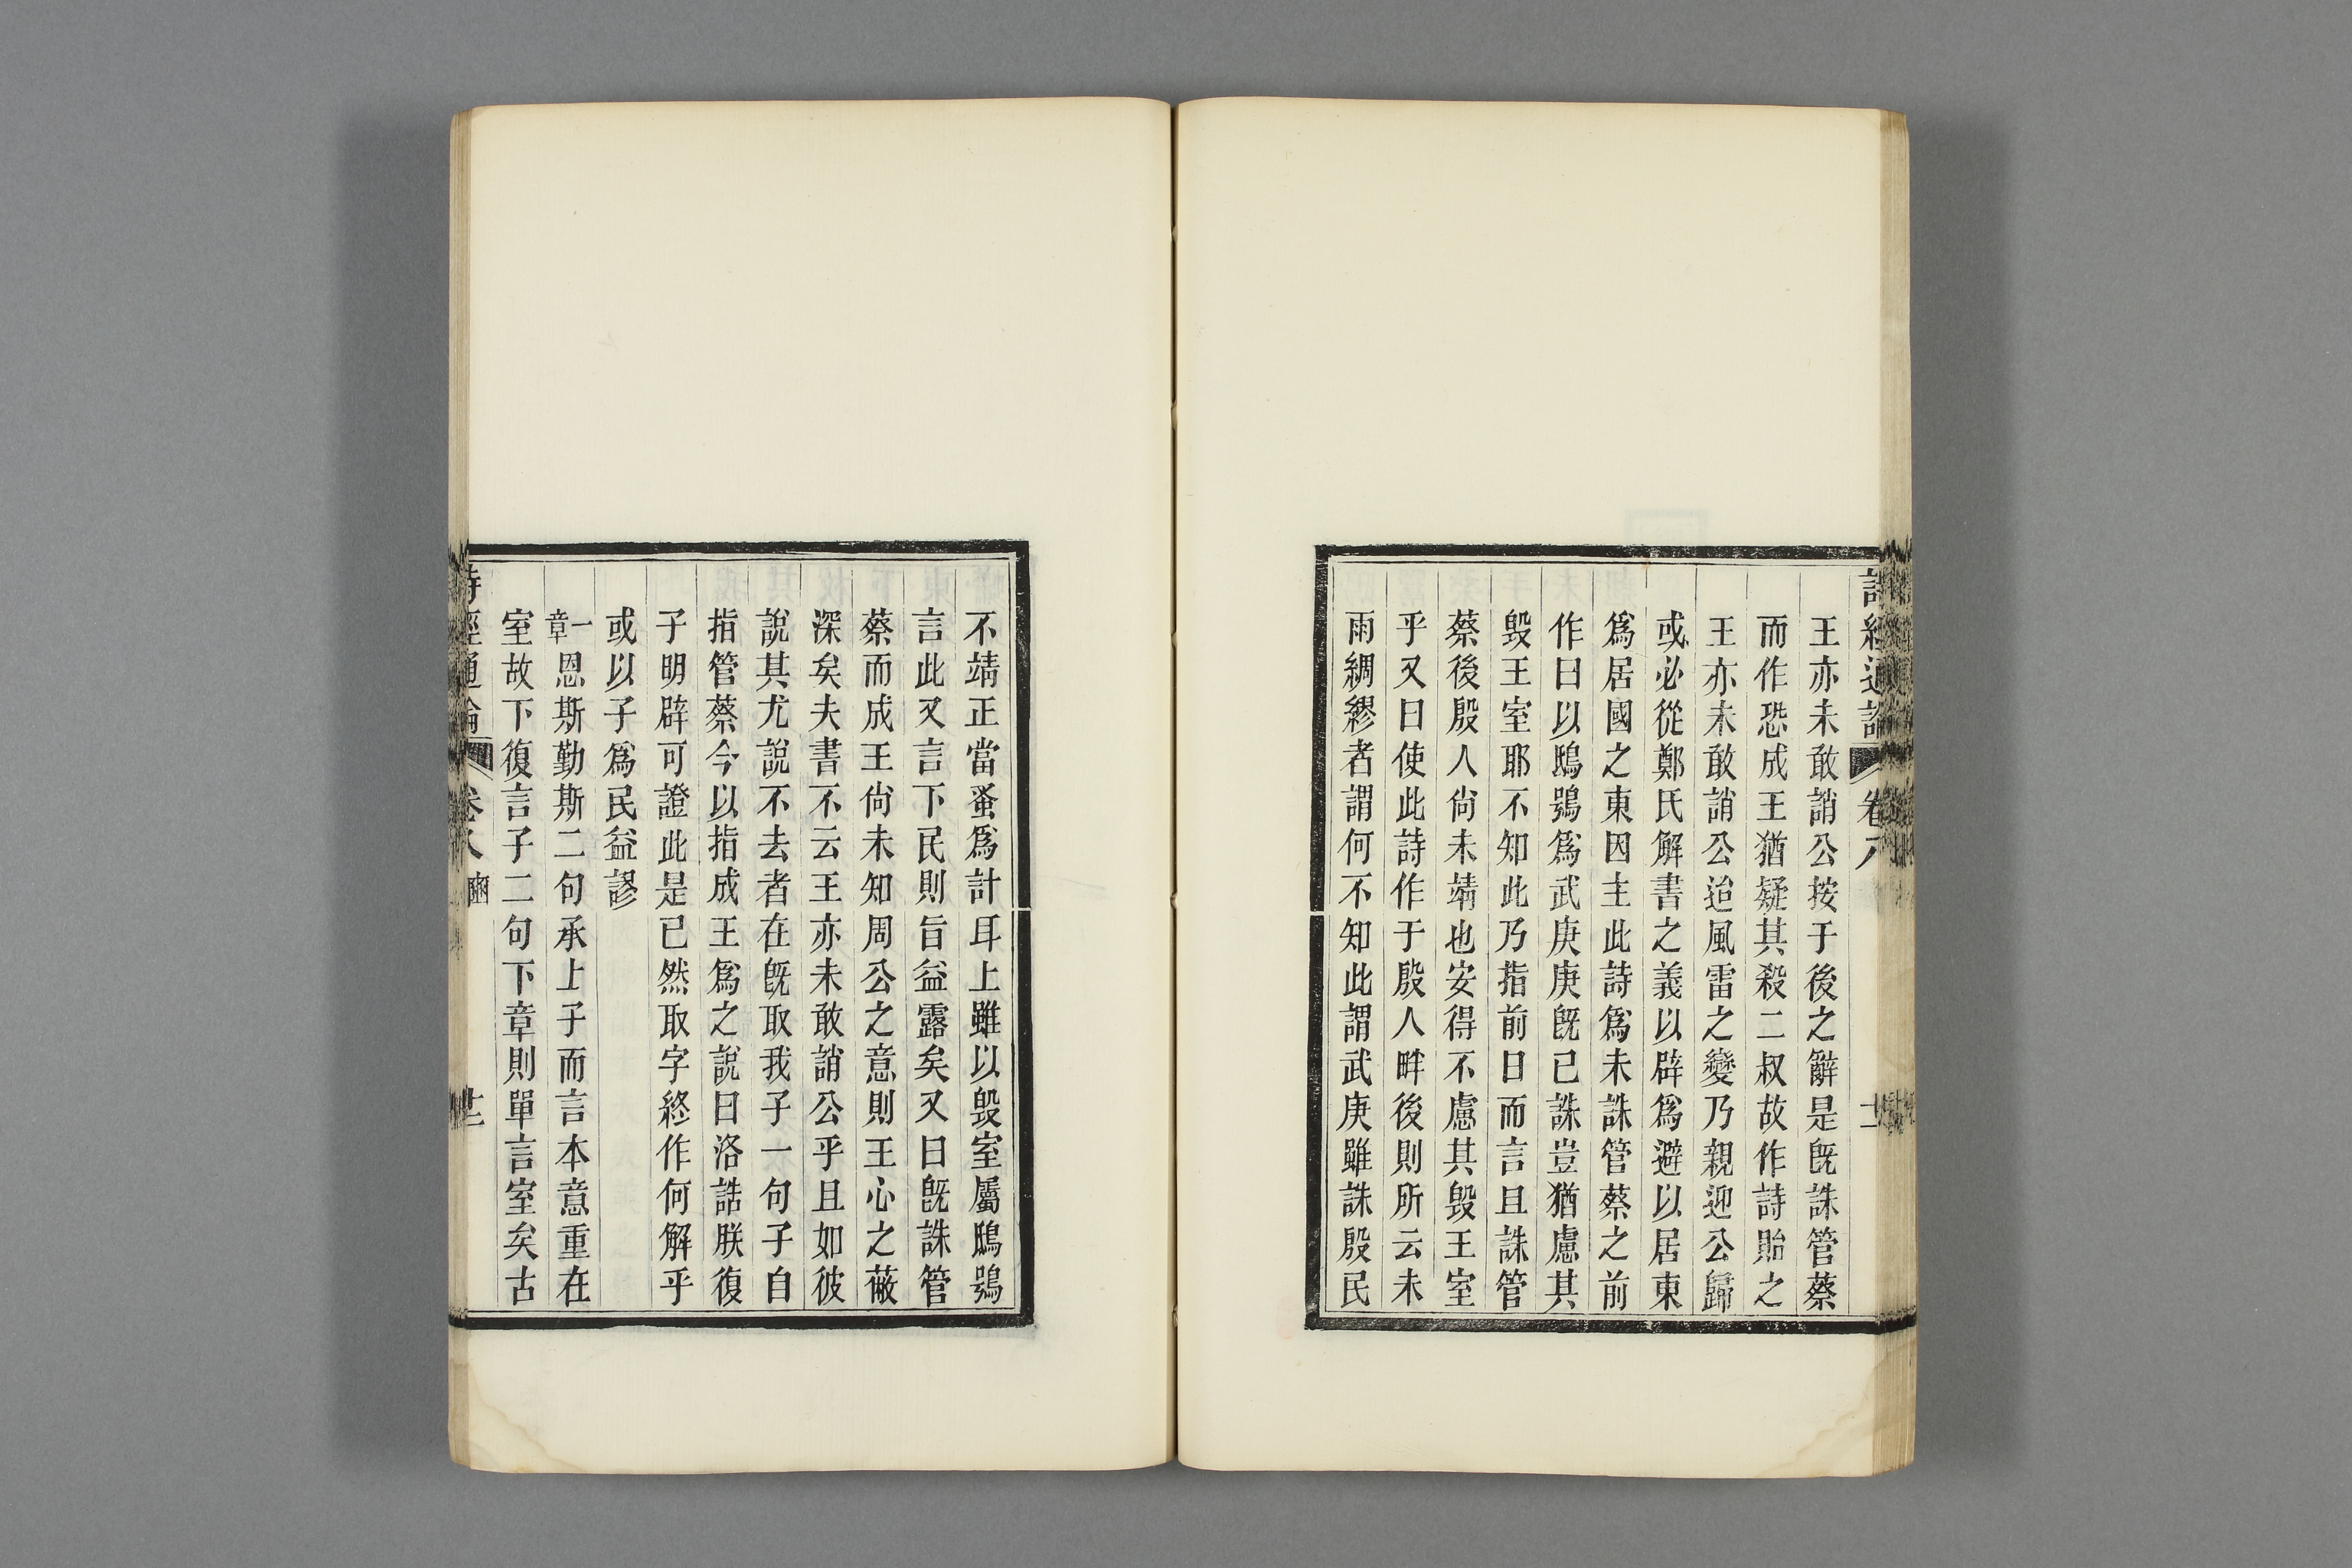 詩經通論 卷八 十二
王亦未敢誚公按于後之辭是旣誅管蔡
而作恐成王猶疑其殺二叔故作詩貽之
王亦未敢誚公迨風雷之變乃親迎公歸
或必從鄭氏解書之義以辟爲避以居東
爲居國之東因主此詩爲未誅管蔡之前
作曰以鴟鴞爲武庚庚旣已誅豈猶慮其
毀王室耶不知此乃指前日而言且誅管
蔡後殷人尙未靖也安得不慮其毀王室
乎又曰使此詩作于殷人畔後則所云未
雨綢繆者謂何不知此謂武庚雖誅殷民
不靖正當蚤爲計耳上雖以毀室屬鴟鴞
言此又言下民則旨益露矣又曰旣誅管
蔡而成王尙未知周公之意則王心之蔽
深矣夫書不云王亦未敢誚公乎且如彼
說其尤說不去者在旣取我子一句子自
指管蔡今以指成王爲之說曰洛誥朕復
子明辟可證此是已然取字終作何解乎
或以子爲民益謬
一章恩斯勤斯二句承上子而言本意重在
室故下復言子二句下章則單言室矣古
詩經通論 卷八 豳